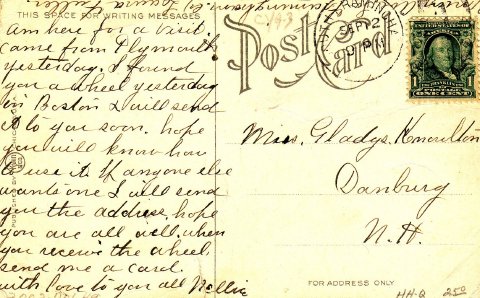 THIS SPACE FOR WRITING MESSAGES
am here for a visit.
came from Plymouth
yesterday. I found
you a wheel yesterday
in Boston I will send
it to you soon. hope
you will know how
to use it. If anyone else
wants one I will send
you the address. hope
you are all well. when
you receive the wheel
send me a card.
with love to you all Nellie
Post Card
SEP 12
UNITED STATES OF AMERICA
FRANKLIN
POSTAGE
ONE CENT
Miss. Gladys Knoulton
Danbury
N. H.
FOR ADDRESS ONLY
HH-Q 25¢